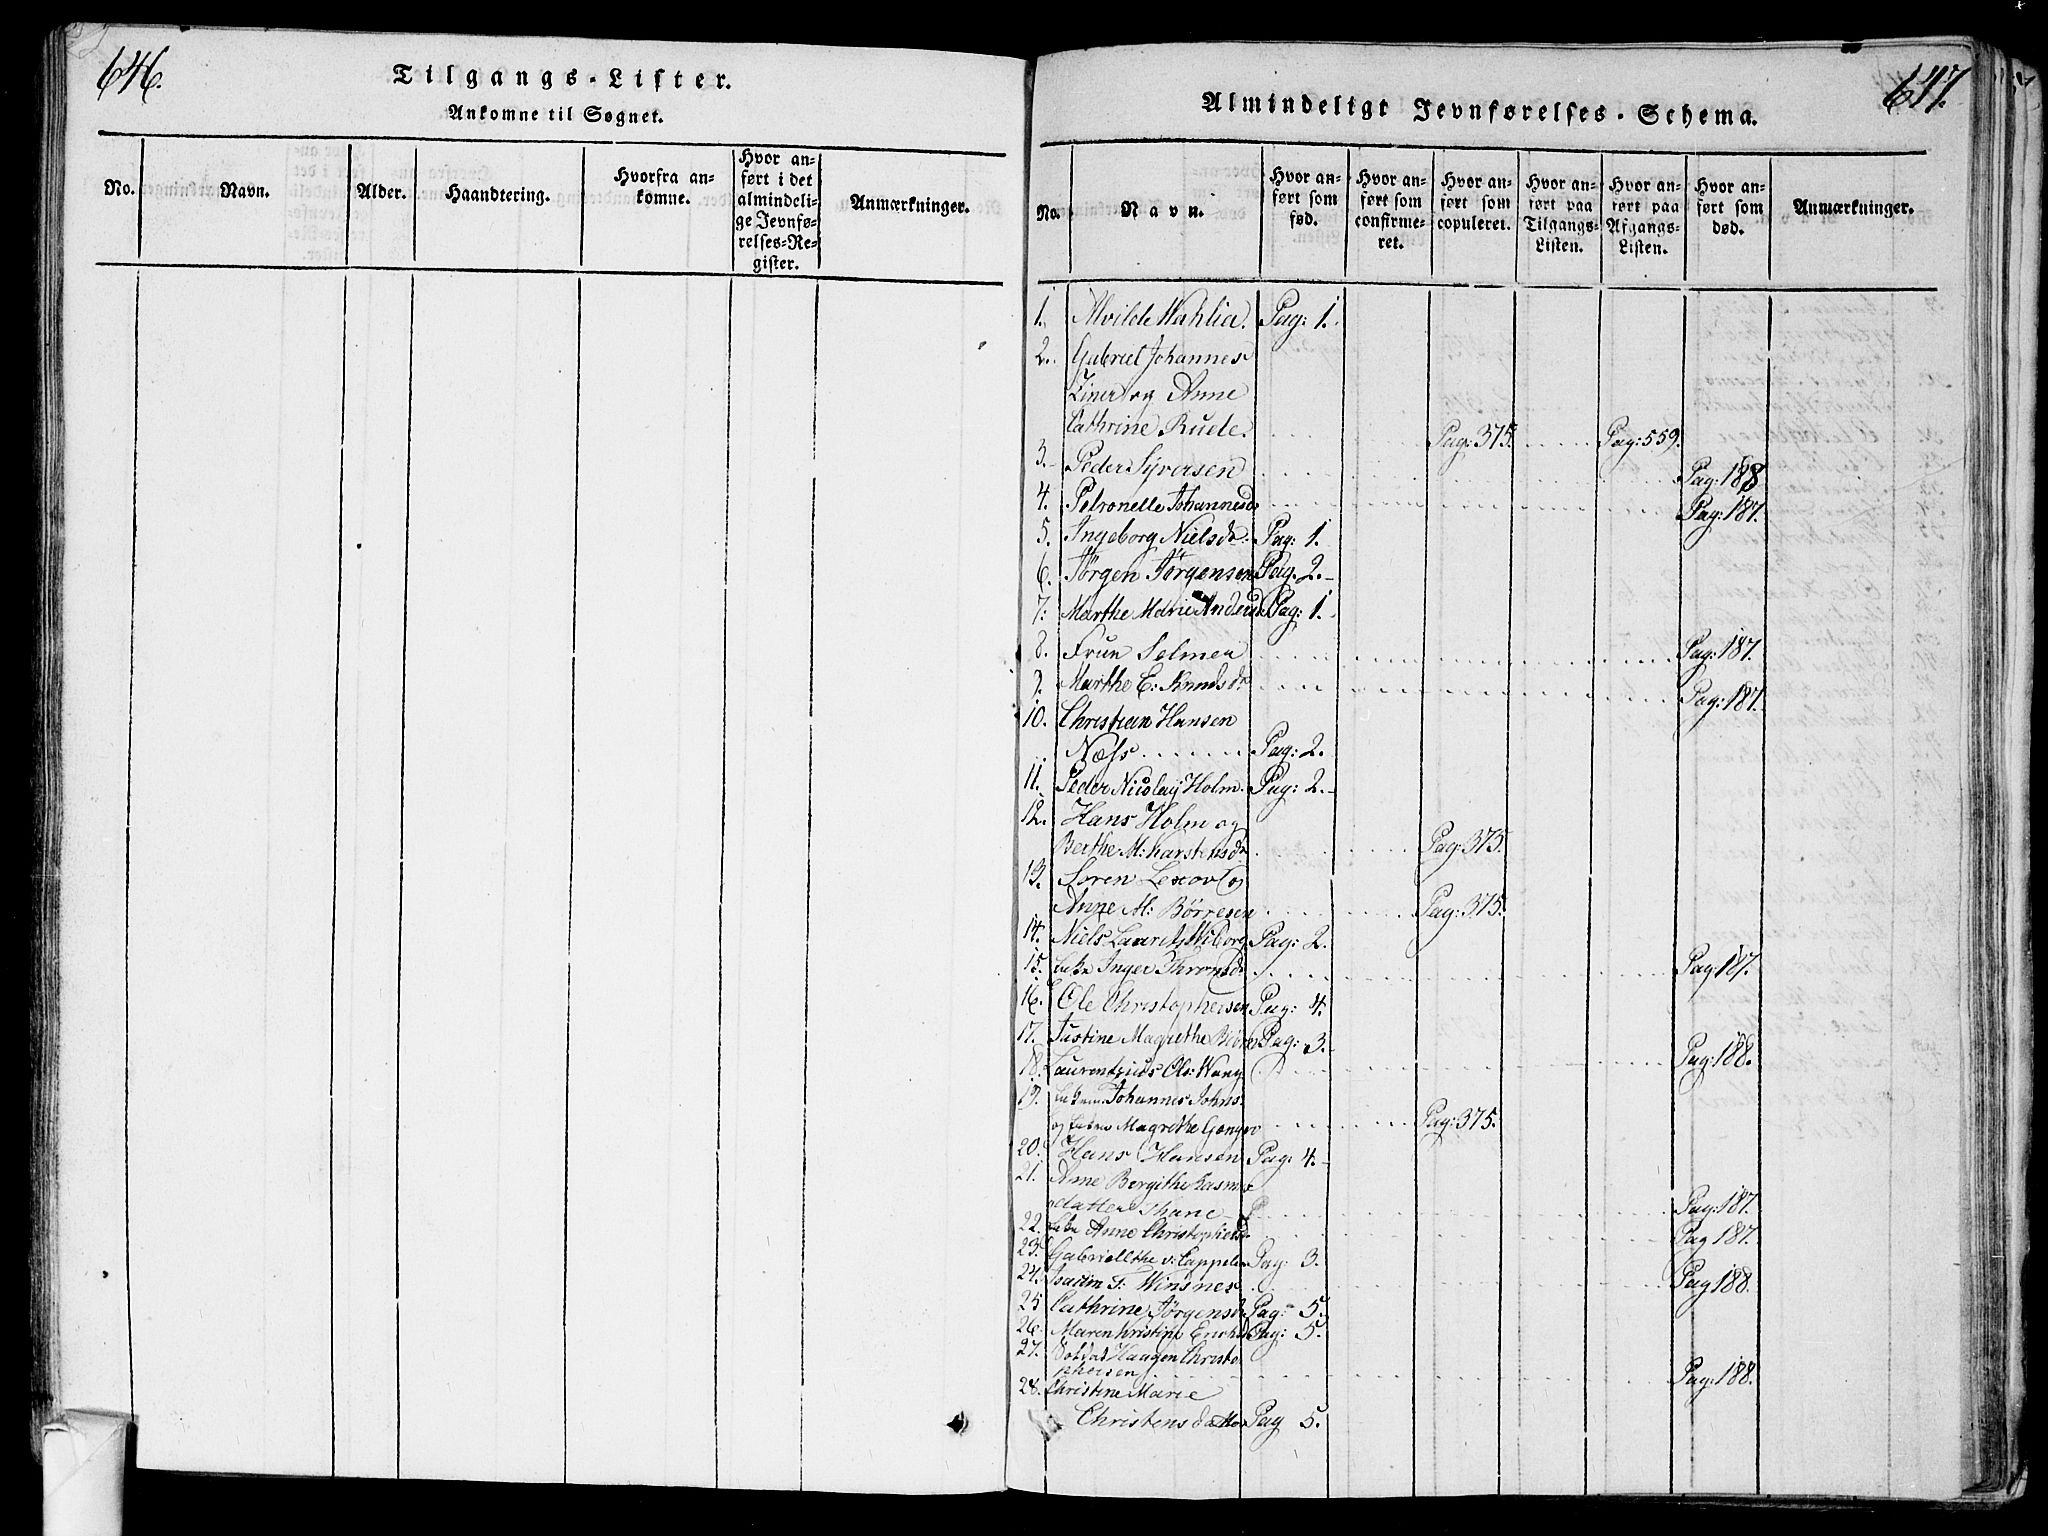 646.
Tilgangs-Lister.
Ankomne til Sognet.
No.
Navn.
Alder.
Haandtering.
Hvorfra an-
komne.
Hvor an-
ført i det
almindeli-
ge Jevnfø-
relses-Re-
gister.
Anmærkninger.
647.
Almindeligt Jevnførelses-Schema.
No.
Navn.
Hvor an-
ført som
fød.
Hvor an-
ført som
confirme-
ret.
Hvor an-
ført som
copuleret.
Hvor an-
ført paa
Tilgangs-
Listen.
Hvor an-
ført paa
Afgangs-
Listen.
Hvor an-
ført som
død.
Anmærkninger.
1. Alvilde Mahlia. Pag: 1.
2. Gabriel Johannes
Ziner og Anne
Cathrine Ruele. Pag: 375. Pag: 559.
3. Peder Syversen Pag: 188
4. Petronelle Johannesd. Pag: 187.
5. Ingeborg Nielsd. Pag: 1.
6. Jörgen Jörgensen Pag. 2.
7. Marthe Marie Andersd Pag: 1.
8. Fruen Selmer Pag: 187.
9. Marthe E: Knudsd. Pag: 187.
10. Christian Hansen
Næss Pag: 2.
11. Peder Nicolaÿ Holm. Pag: 2.
12. Hans Holm og
Berthe M: Karstensd. Pag: 375.
13. Sören Lexov og
Anne M: Börresen Pag: 375.
14. Niels Laurits Wiborg Pag: 2.
15. Enke Inger Thronsd. Pag: 187.
16. Ole Christophersen Pag: 4.
17. Justine Magrethe Pag: 3.
18. Laurentzius Ols: Wang Pag: 188.
19. Johannes Johns:
og Magrethe Pag: 375.
20. Hans Hansen Pag: 4.
21. Anne Bergithe Rasmus
datter Thane Pag: 187.
22. Enke Anne Christophersd. Pag 187.
23. Gabriellthe v: Cappelen Pag: 3.
24. Joachim F: Winsnes Pag 188.
25 Cathrine Jörgensd. Pag: 5.
26. Maren Kristine Pag: 5.
27. Soldat Haagen Christo
phersen Pag: 188.
28. Christine Marie
Christensdatter Pag 5.